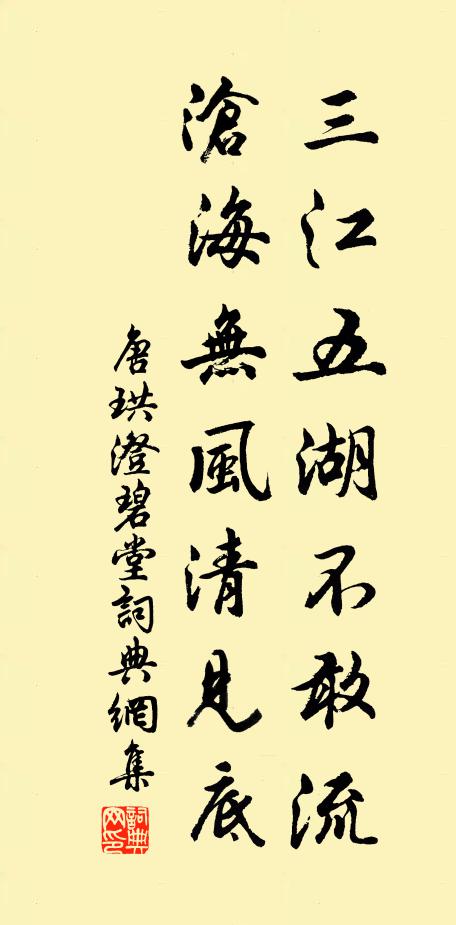 三江五湖不敢流
滄海無風清見底
唐珙澄碧堂詞典網集
詞典網印